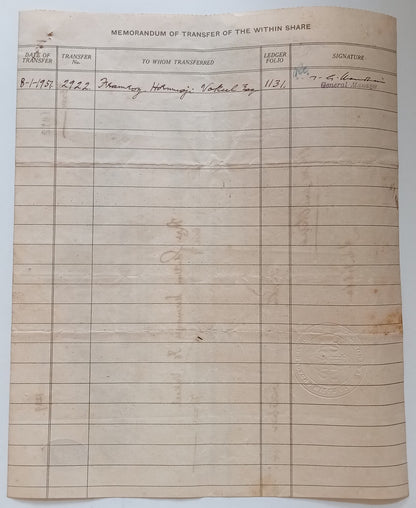 MEMORANDUM OF TRANSFER OF THE WITHIN SHARE
DATE OF TRANSFER
TRANSFER No.
TO WHOM TRANSFERRED
LEDGER FOLIO
SIGNATURE
8-1-1957 2922 Framroz Hormusji Vakeel Esq 1131
General Manager